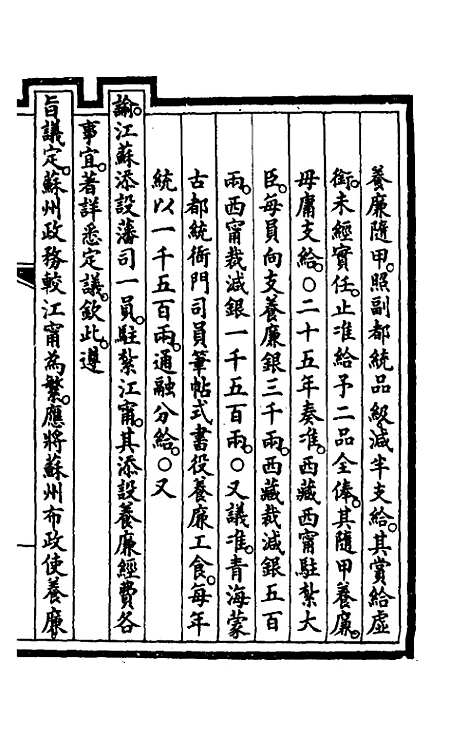 養廉隨甲。照副都統品級減半支給。其賞給虛
銜。未經實任。止准給予二品全俸。其隨甲養廉。
毋庸支給。○二十五年奏准。西藏西甯駐紮大
臣。每員向支養廉銀三千兩。西藏裁減銀五百
兩。西甯裁減銀一千五百兩。○又議准。青海蒙
古都統衙門司員筆帖式書役養廉工食。每年
統以一千五百兩。通融分給。○又
諭。江蘇添設藩司一員。駐紮江甯。其添設養廉經費各
事宜。著詳悉定議。欽此。遵
旨議定。蘇州政務較江甯為繁。應將蘇州布政使養廉